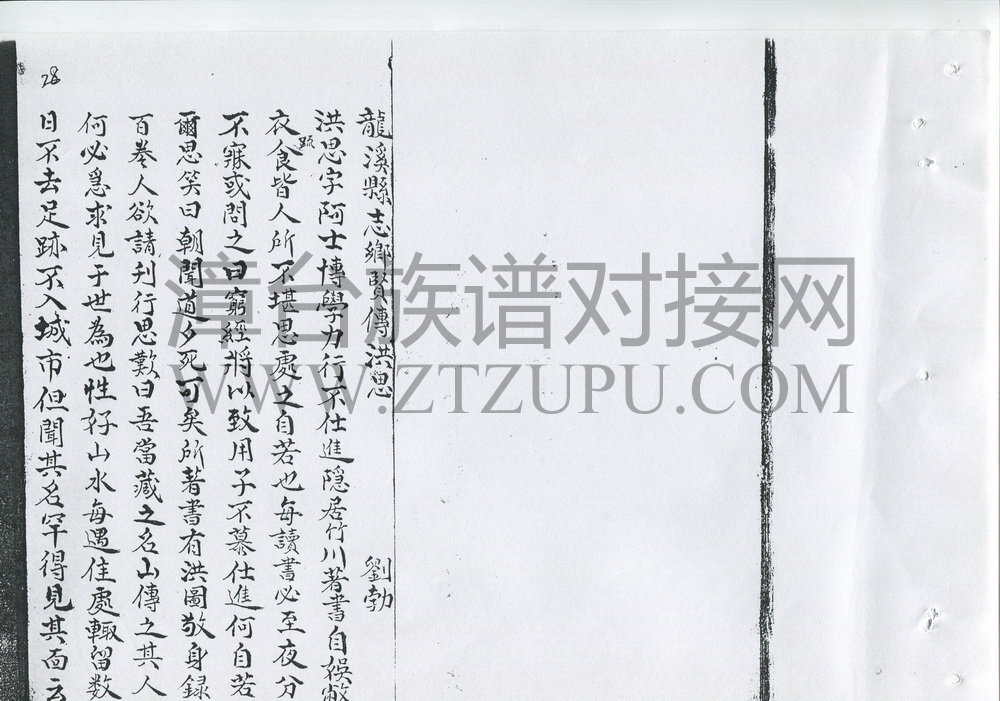 龍溪縣志鄉賢傳洪思 劉勃
洪思字阿士博學力行不仕進隱居竹川著書自娛敝
衣疏食皆人所不堪思處之自若也每讀書必至夜分
不寐或問之曰窮經將以致用子不慕仕進何自若
爾思笑曰朝聞道夕死可矣所著書有洪圖敬身錄
百卷人欲請刊行思歎曰吾當藏之名山傳之其人
何必急求見于世為也性好山水每遇佳處輙留数
日不去足跡不入城市但聞其名罕得見其面云
28
漳台族谱对接网
WWW.ZTZUPU.COM